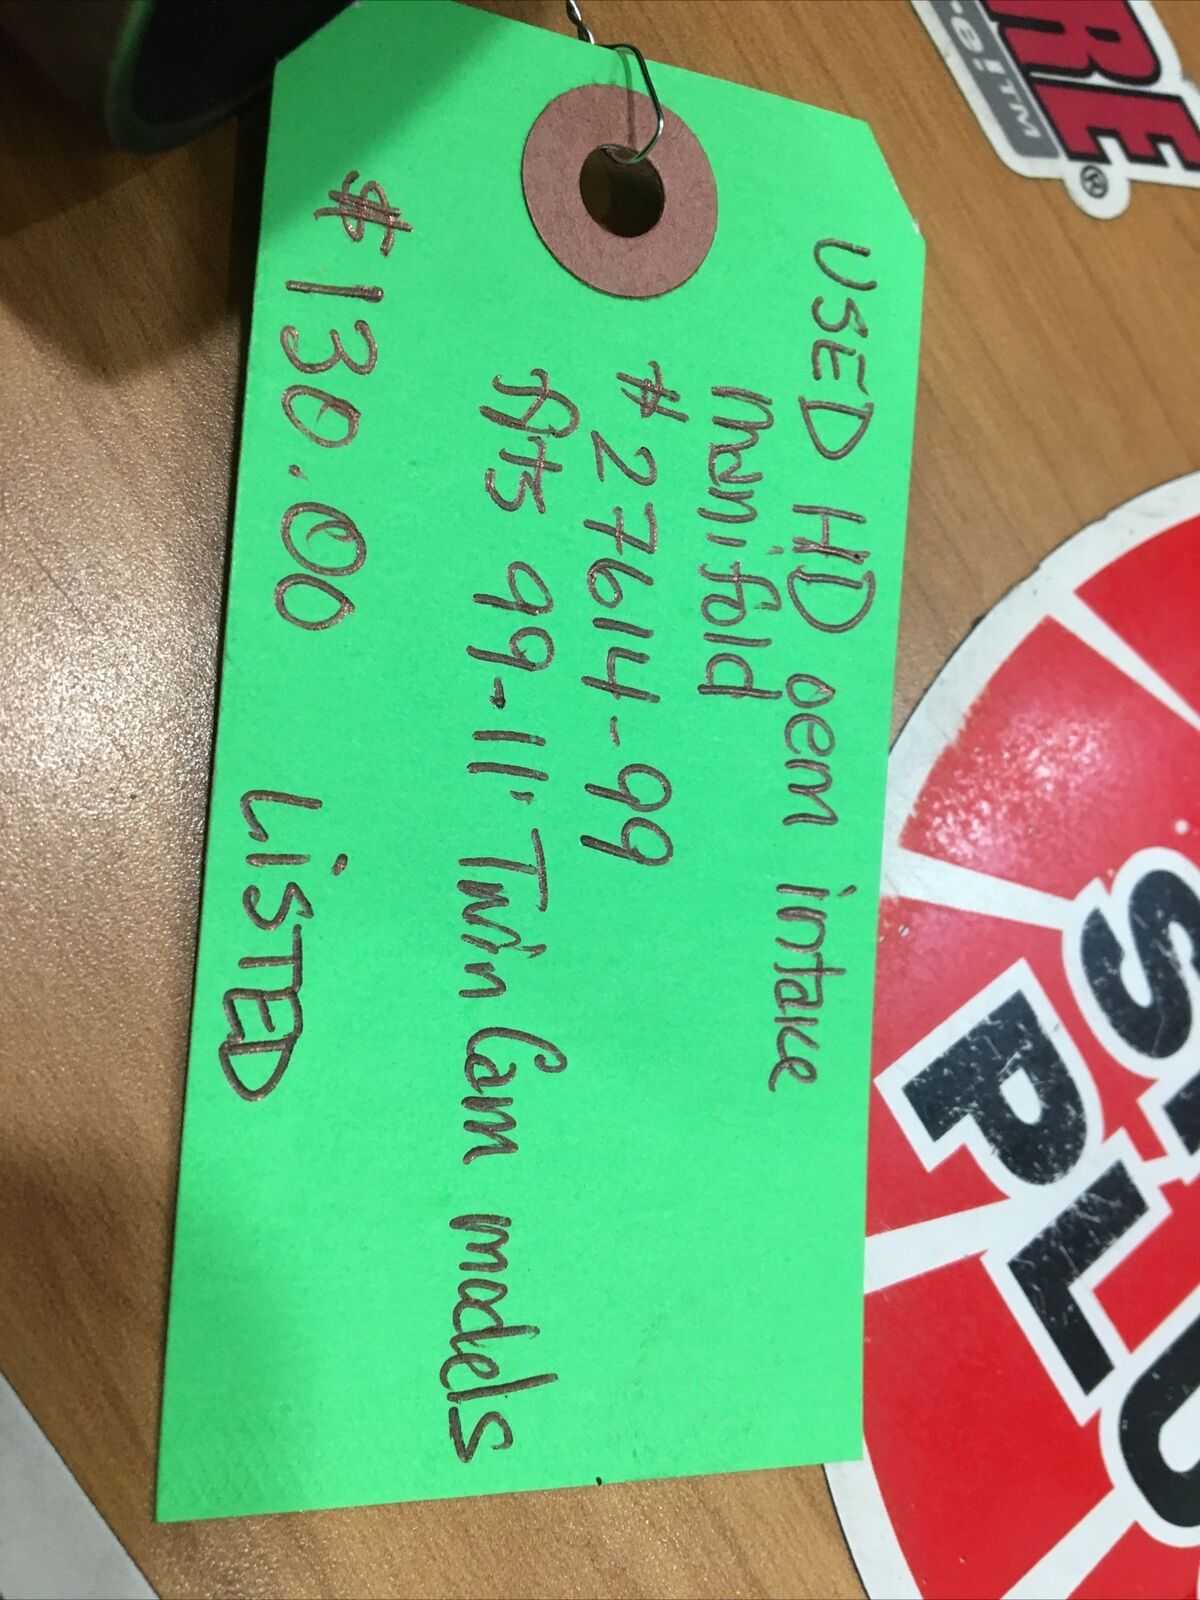 USED HD oem intake
manifold
# 27614-99
fits 99-11' Twin Cam models
$130.00 LISTED
RE®
re!™
PL